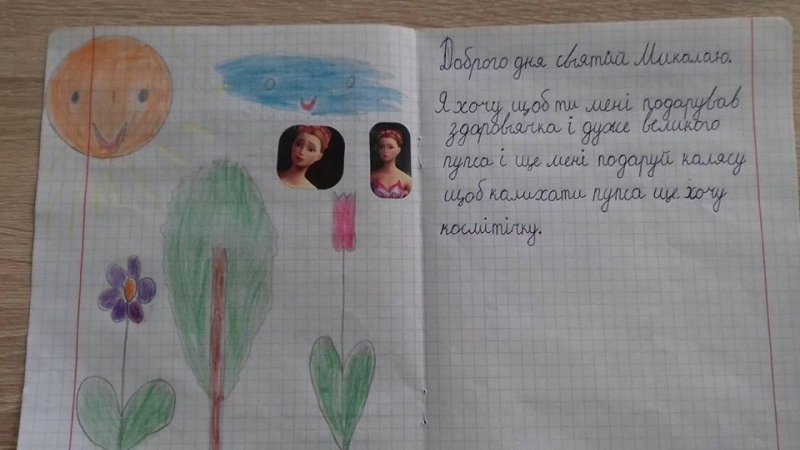 Доброго дня святий Миколаю.
Я хочу щоб ти мені подарував
здоров'ячка і дуже великого
пупса і ще мені подаруй калясу
щоб калихати пупса ще хочу
космітічку.